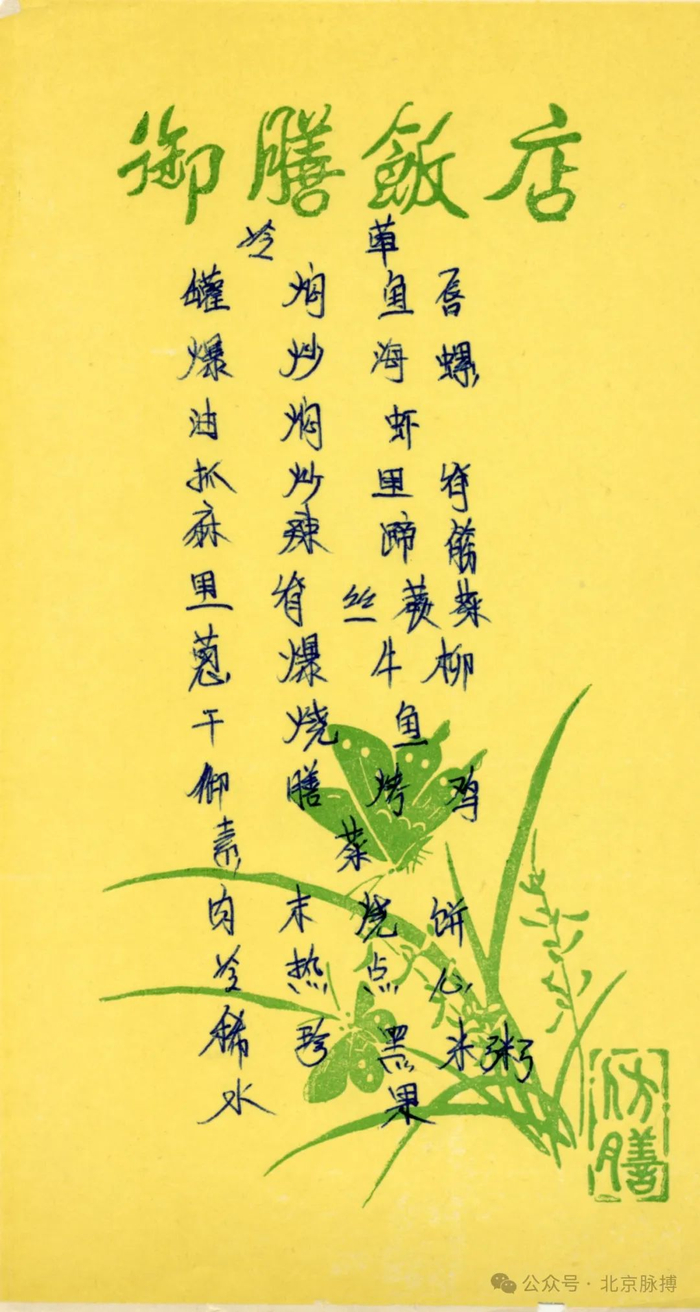 御膳飯店
冷 荤
罐焖鱼唇
爆炒海螺
油焖虾
抓炒里脊
麻辣蹄筋
里脊丝蕨菜
葱爆牛柳
干烧鱼
御膳烤鸡
素菜
肉末烧饼
冷热点心
稀珍黑米粥
水果
仿膳
公众号·北京脉搏